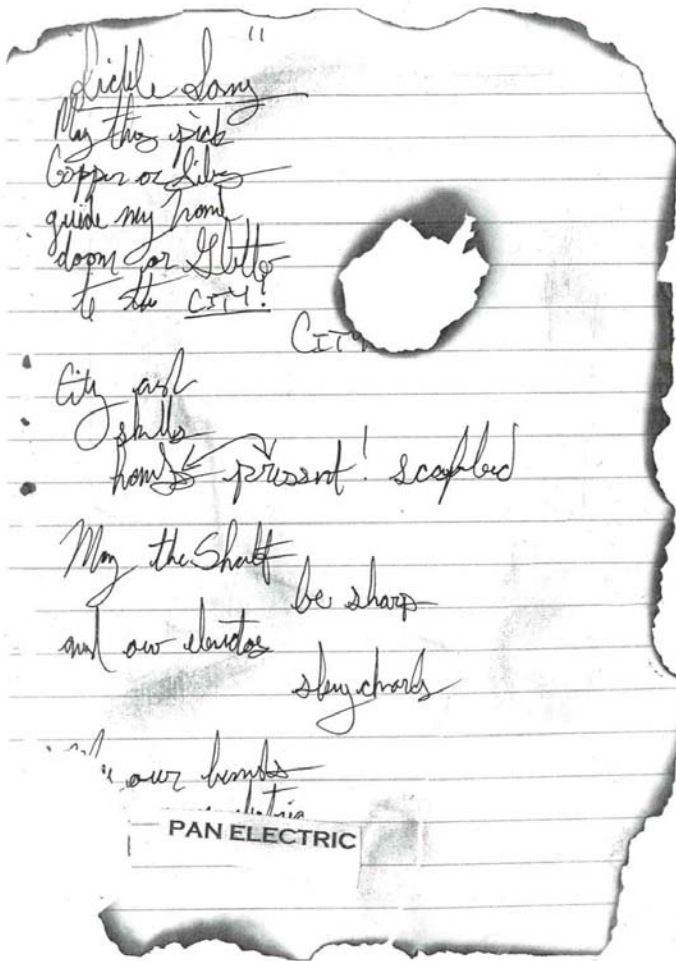 "Sickle Song"
May this pick
Copper or Silver
guide my hand
doom or Glitter
to the CITY!
CITY
City and
skills
present! scaffold
May the Shaft
be sharp
and our elevator
sky chords
our
PAN ELECTRIC